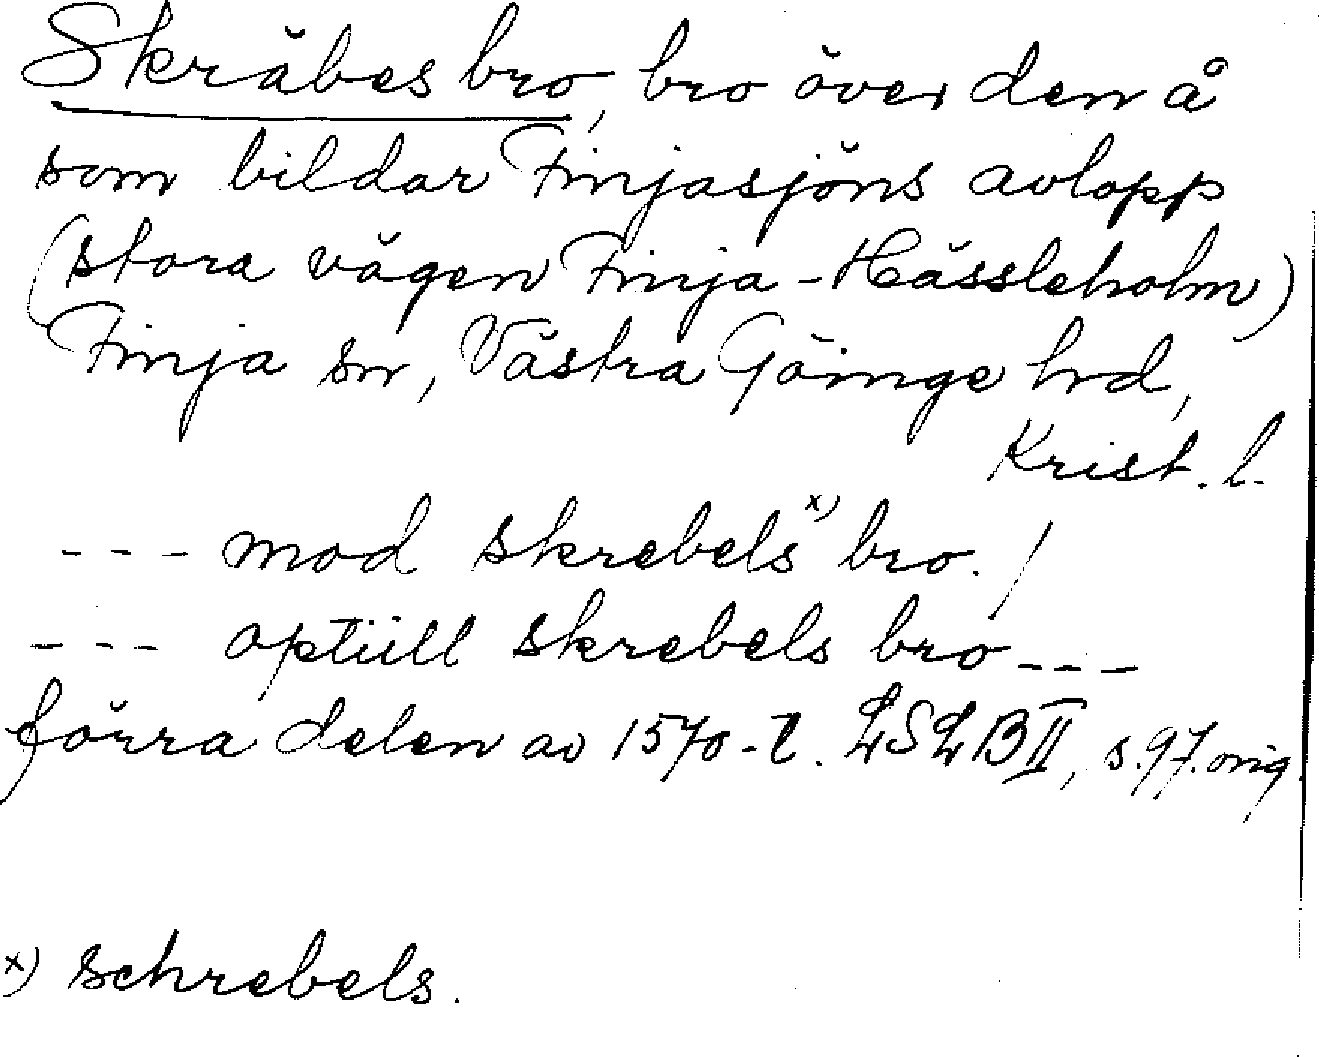 Skräbes bro, bro över den å
som bildar Finjasjöns avlopp
(stora vägen Finja-Hässleholm)
Finja sn, Västra Göinge hrd,
Krist. l.
--- mod skrebels x) bro. /
--- optiill skrebels bro ---
förra delen av 1570-t. LSLB II, s. 97. orig.
x) schrebels.